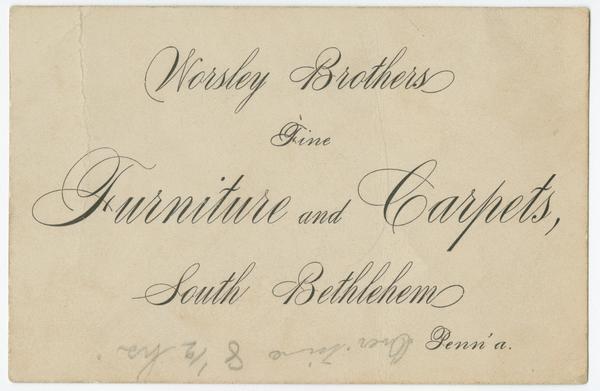 Worsley Brothers
Fine
Furniture and Carpets,
South Bethlehem
Penn'a.
8 1/2 hrs.